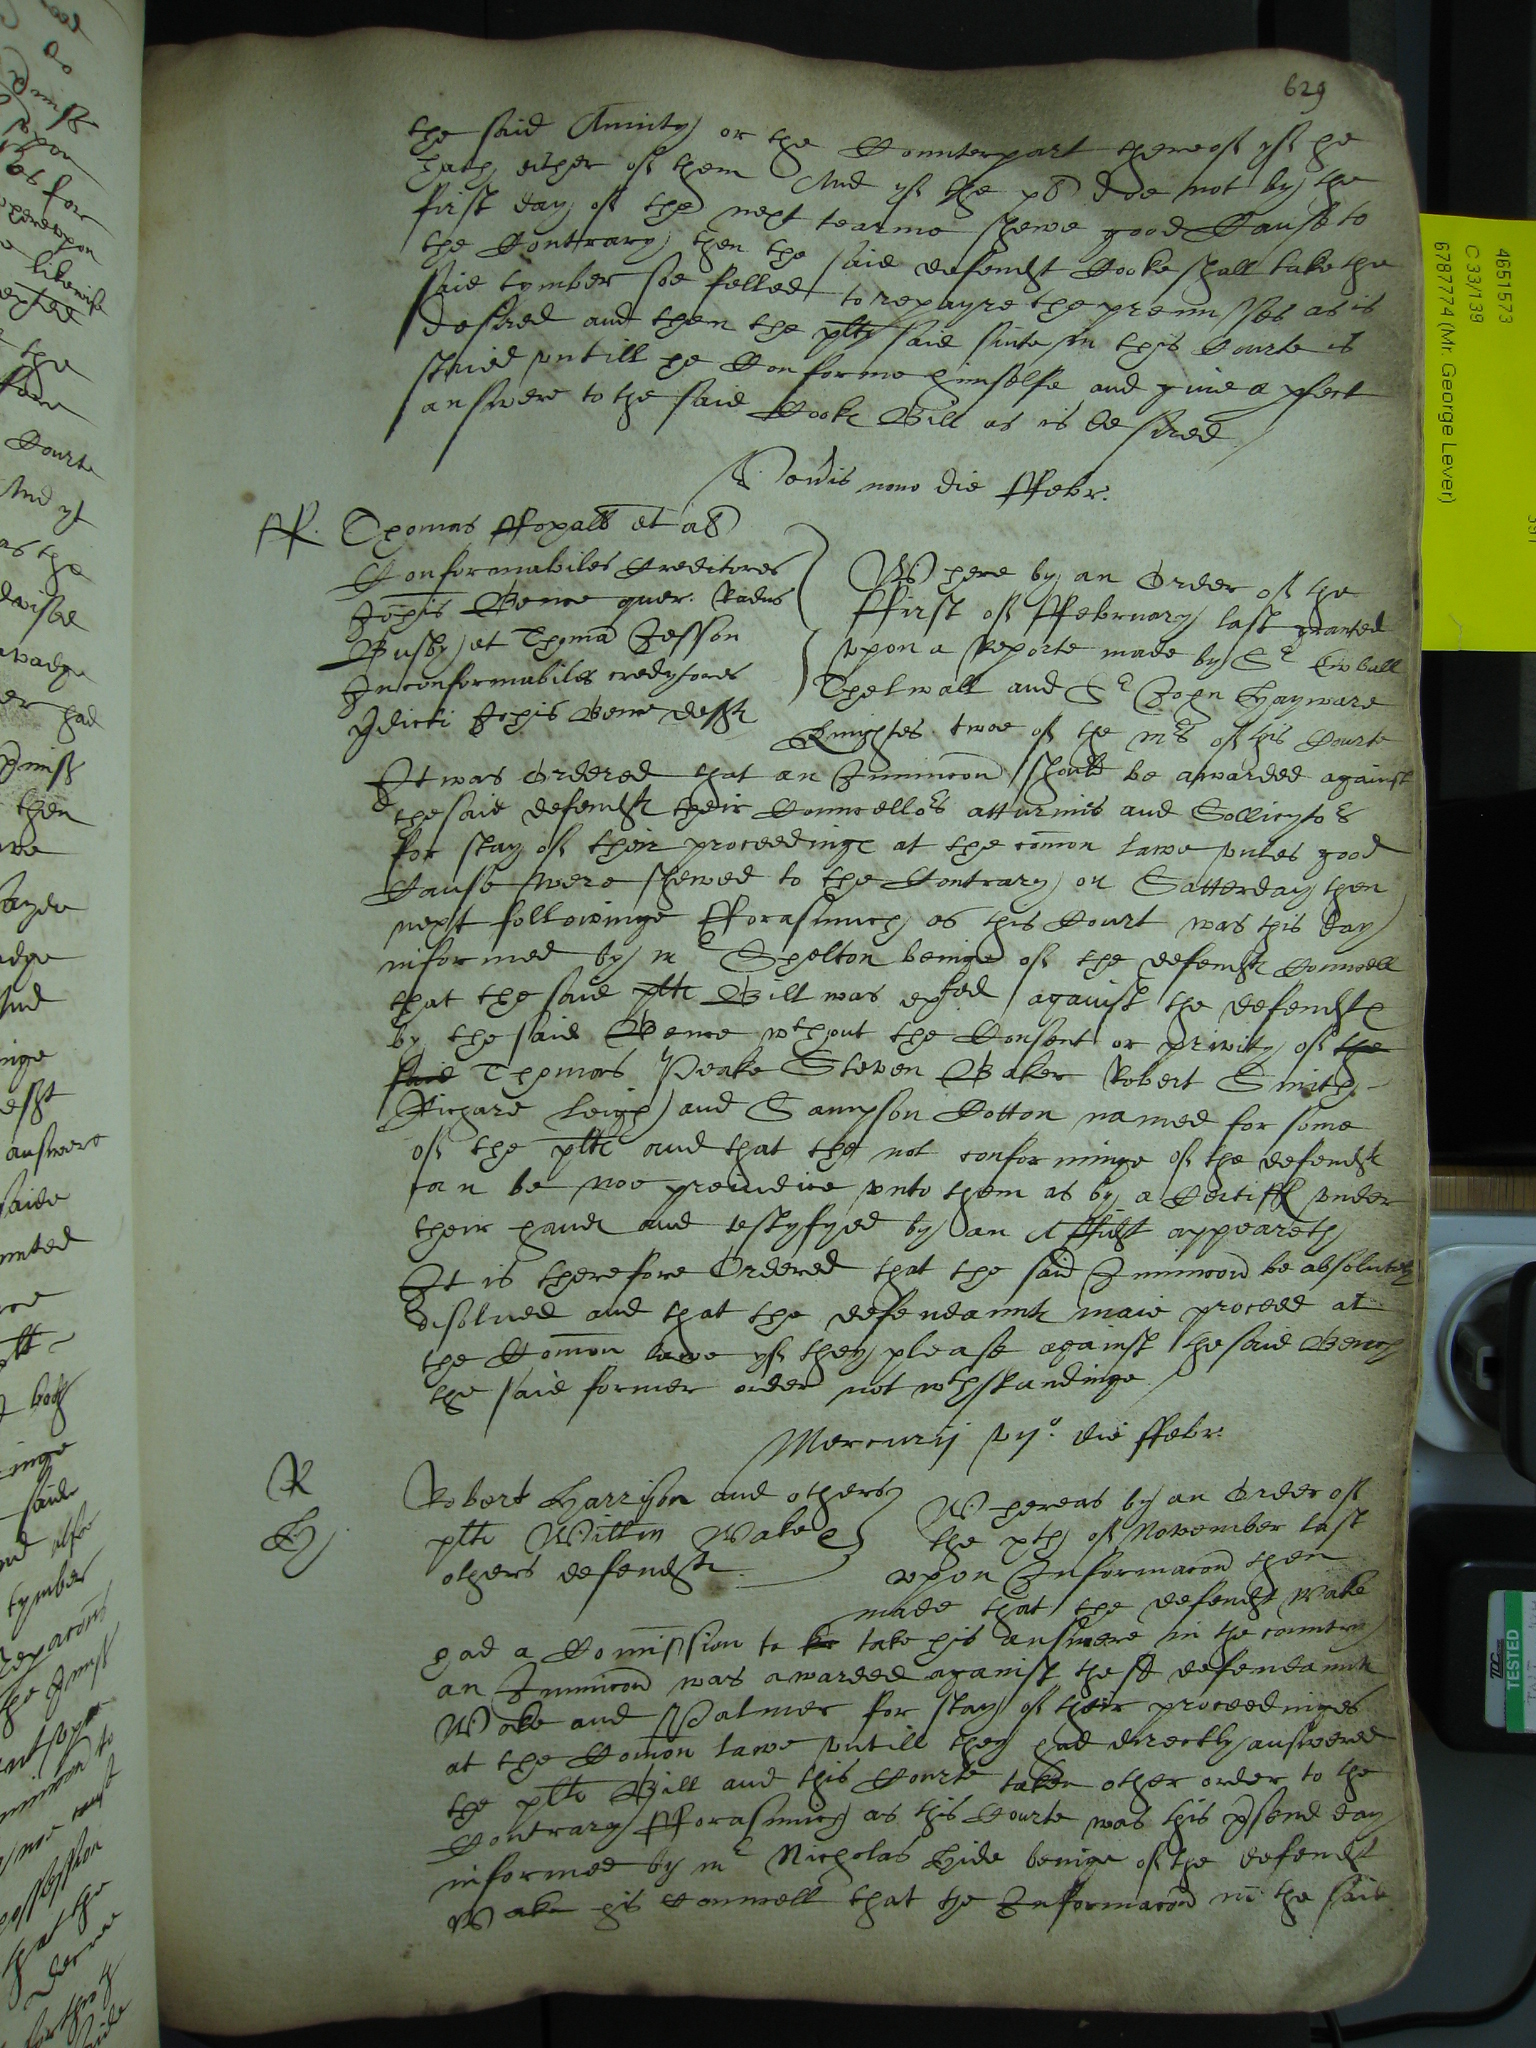 629
the said Annuity or the Counterpart thereof yf he
hath either of them And yf the pl doe not by the
first day of the next tearme shewe good Cause to
the Contrary then the said defendt Cooke shall take the
said tymber soe felled to repayre the premisses as is
desired and then the plts said suite in this Courte is
staied untill he Conforme himselfe and give a pfect
answere to the said Cooks Bill as is desired
Jovis nono die ffebr.
ff. Thomas ffoxall et al
Conformabiles Creditores
Johis Bence quer. Radus
Busby et Thoma Jesson
Inconformabiles credytores
dicti Johis Bence defts
Where by an Order of the
ffirst of ffebruary last granted
upon a Reporte made by Sr Eubull
Thelwall and Sr John Hayward
Knightes twoe of the mrs of this Courte
It was Ordered that an Iniunccon should be awarded against
the said defendts their Councellors atturnies and Sollicytors
for stay of their proceedinge at the comon lawe unles good
Cause were shewed to the Contrary on Satterday then
next followinge fforasmuch as this Court was this day
informed by mr Shelton beinge of the defendts Councell
that the said plts Bill was exhibited against the defendts
by the said Bence wthout the Consent or privity of the
said Thomas Peake Steven Baker Robert Smith
Richard Leigh and Sampson Cotton named for some
of the plts and that the not conforminge of the defendts
can be noe preiudice unto them as by a Certiff under
their hands and testyfyed by an Affidt appeareth
It is therefore Ordered that the said Iniunccon be absolutely
disolued and that the defendannts maie proceed at
the Comon lawe yf they please against the said Bench
the said former order not wthstandinge
Mercurij vijo. die ffebr.
R
Hy
Robert Harryson and others
plts Willm Wake
others defendts
Whereas by an Order of
the xth of November last
upon Informacon then
made that the defendt Wake
had a Comission to take his answere in the country
an Iniunccon was awarded against the sd defendannts
Wake and Palmer for stay of their proceedinges
at the Comon lawe untill they had directly answered
the plts Bill and this Courte taken other order to the
Contrary fforasmuch as this Courte was this psend day
informed by mr Nicholas Hide beinge of the defendt
Wake his councell that the Informacon in the said
4651573
C 33/139
6787774 (Mr. George Lever)
TESTED